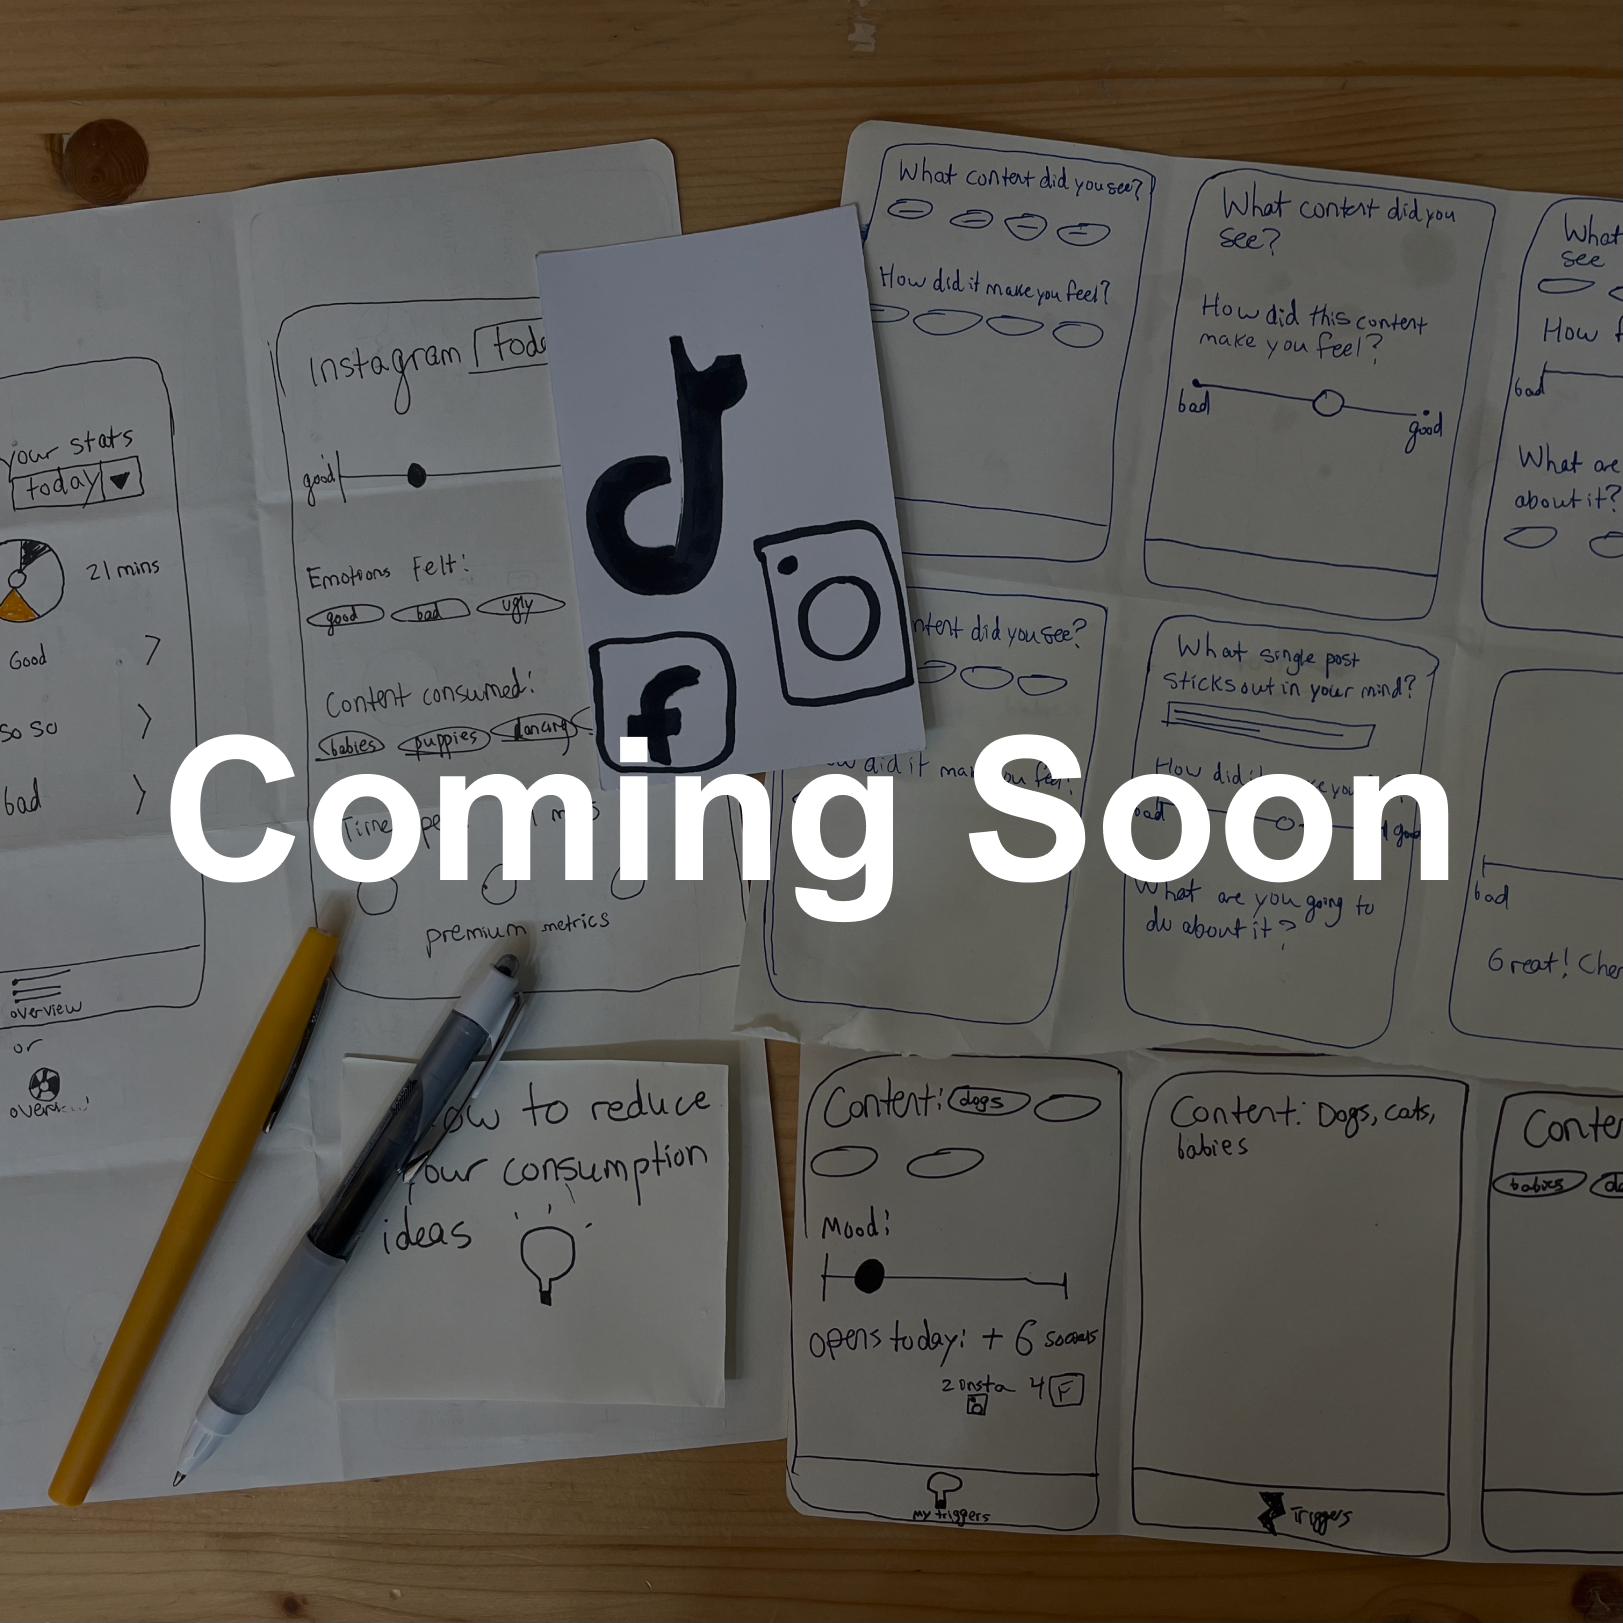 your stats
today
21 mins
Good
so so
bad
overview
or
Instagram
good
Emotions Felt:
good bad ugly
Content consumed:
babies puppies dancing
premium metrics
f
What content did you see?
How did it make you feel?
What content did you
see?
How did this content
make you feel?
bad
good
What
see
How
bad
What are
about it?
did you see?
did it
What single post
sticks out in your mind?
How did
bad
What are you going to
do about it?
bad
Great!
Coming Soon
to reduce
consumption
ideas
Content: dogs
Mood:
opens today: + 6
2 insta 4 F
My triggers
Content: Dogs, cats,
babies
Triggers
babies